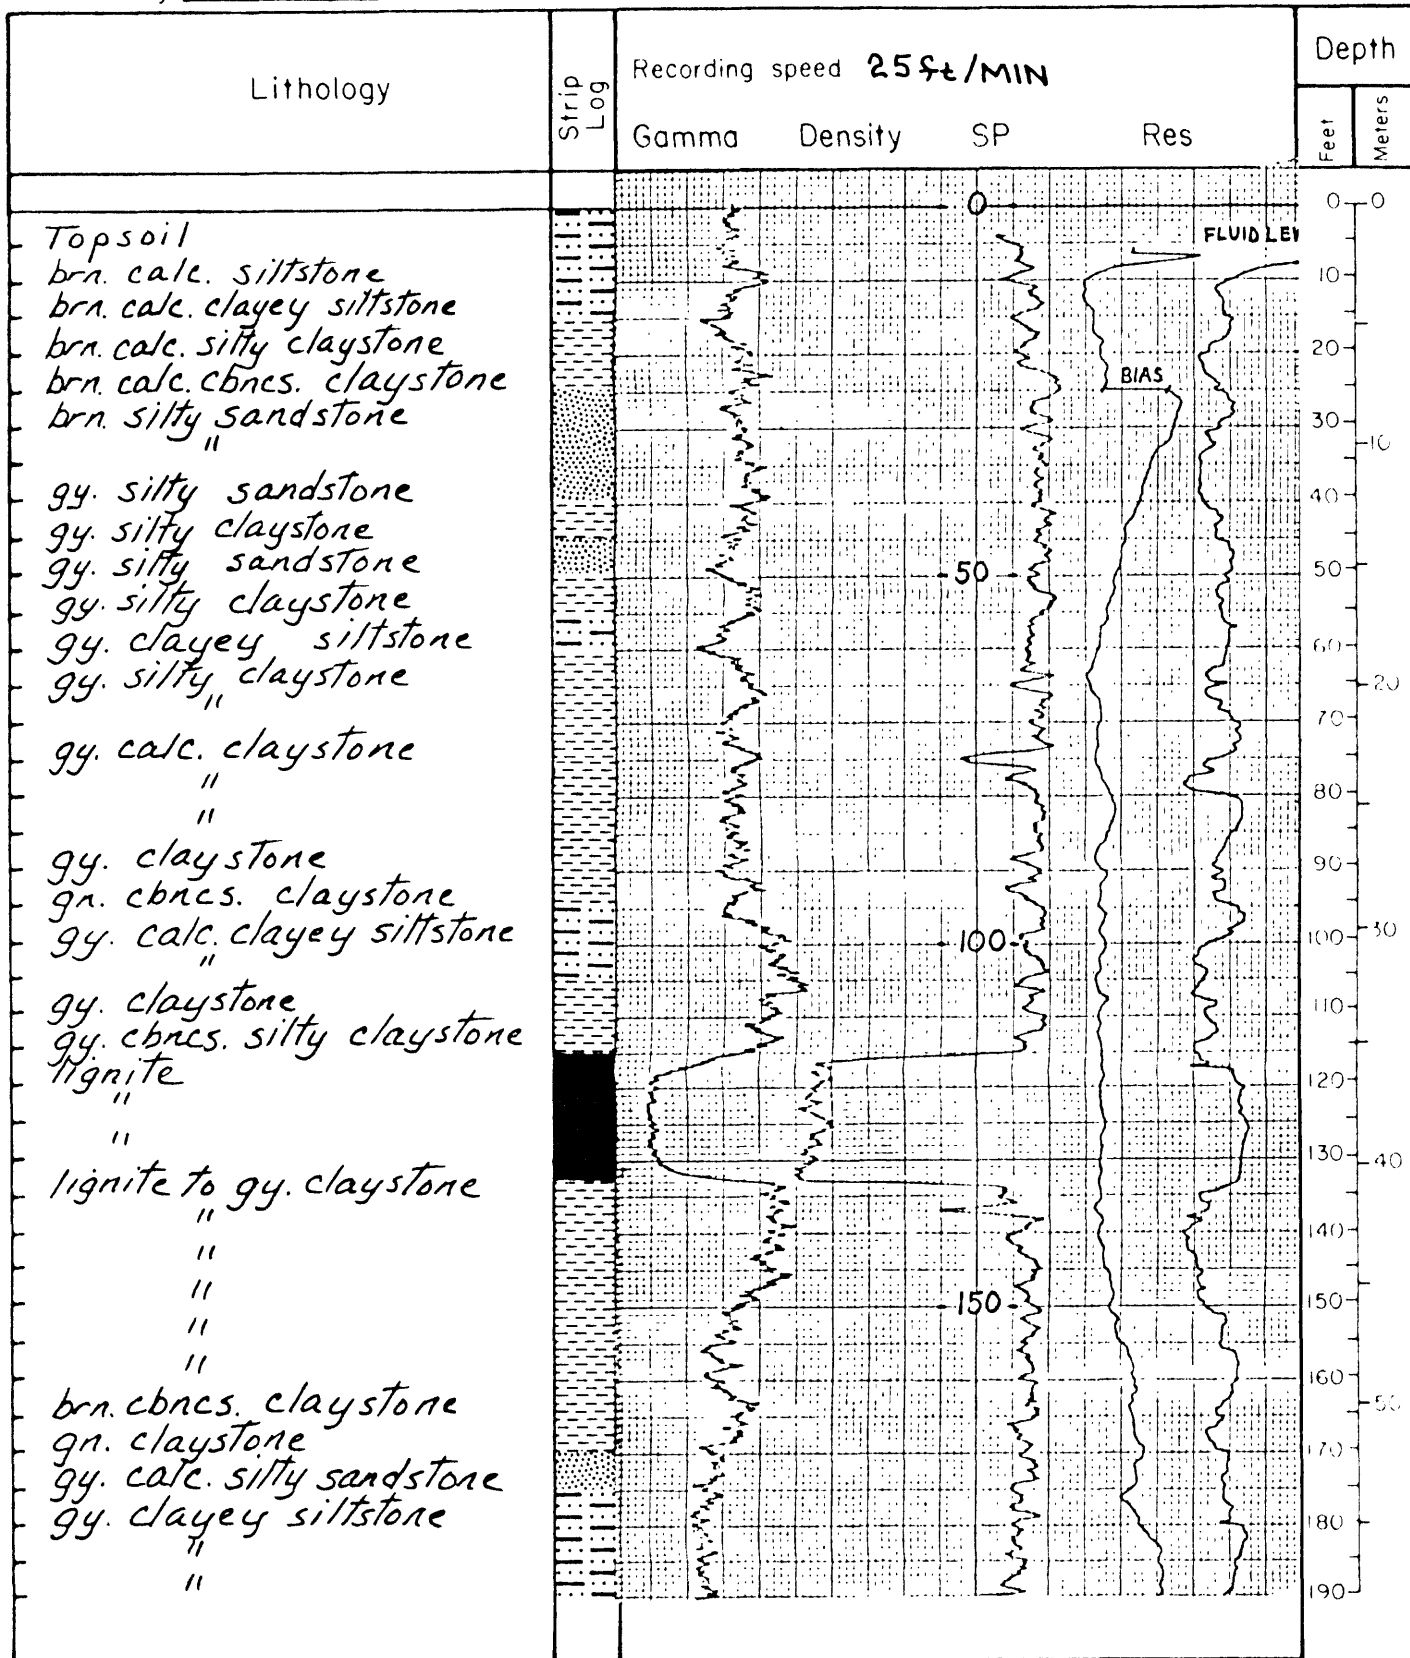 Lithology
Strip Log
Recording speed 25ft/MIN
Gamma Density SP Res
Depth
Feet
Meters
0
FLUID LEV
BIAS
50
100
150
Topsoil
brn. calc. siltstone
brn. calc. clayey siltstone
brn. calc. silty claystone
brn. calc. cbncs. claystone
brn. silty sandstone
"
gy. silty sandstone
gy. silty claystone
gy. silty sandstone
gy. silty claystone
gy. clayey siltstone
gy. silty claystone
"
gy. calc. claystone
"
"
gy. claystone
gn. cbncs. claystone
gy. calc. clayey siltstone
"
gy. claystone
gy. cbncs. silty claystone
lignite
"
"
lignite to gy. claystone
"
"
"
"
"
brn. cbncs. claystone
gn. claystone
gy. calc. silty sandstone
gy. clayey siltstone
"
"
0
10
20
30
40
50
60
70
80
90
100
110
120
130
140
150
160
170
180
190
0
10
20
30
40
50